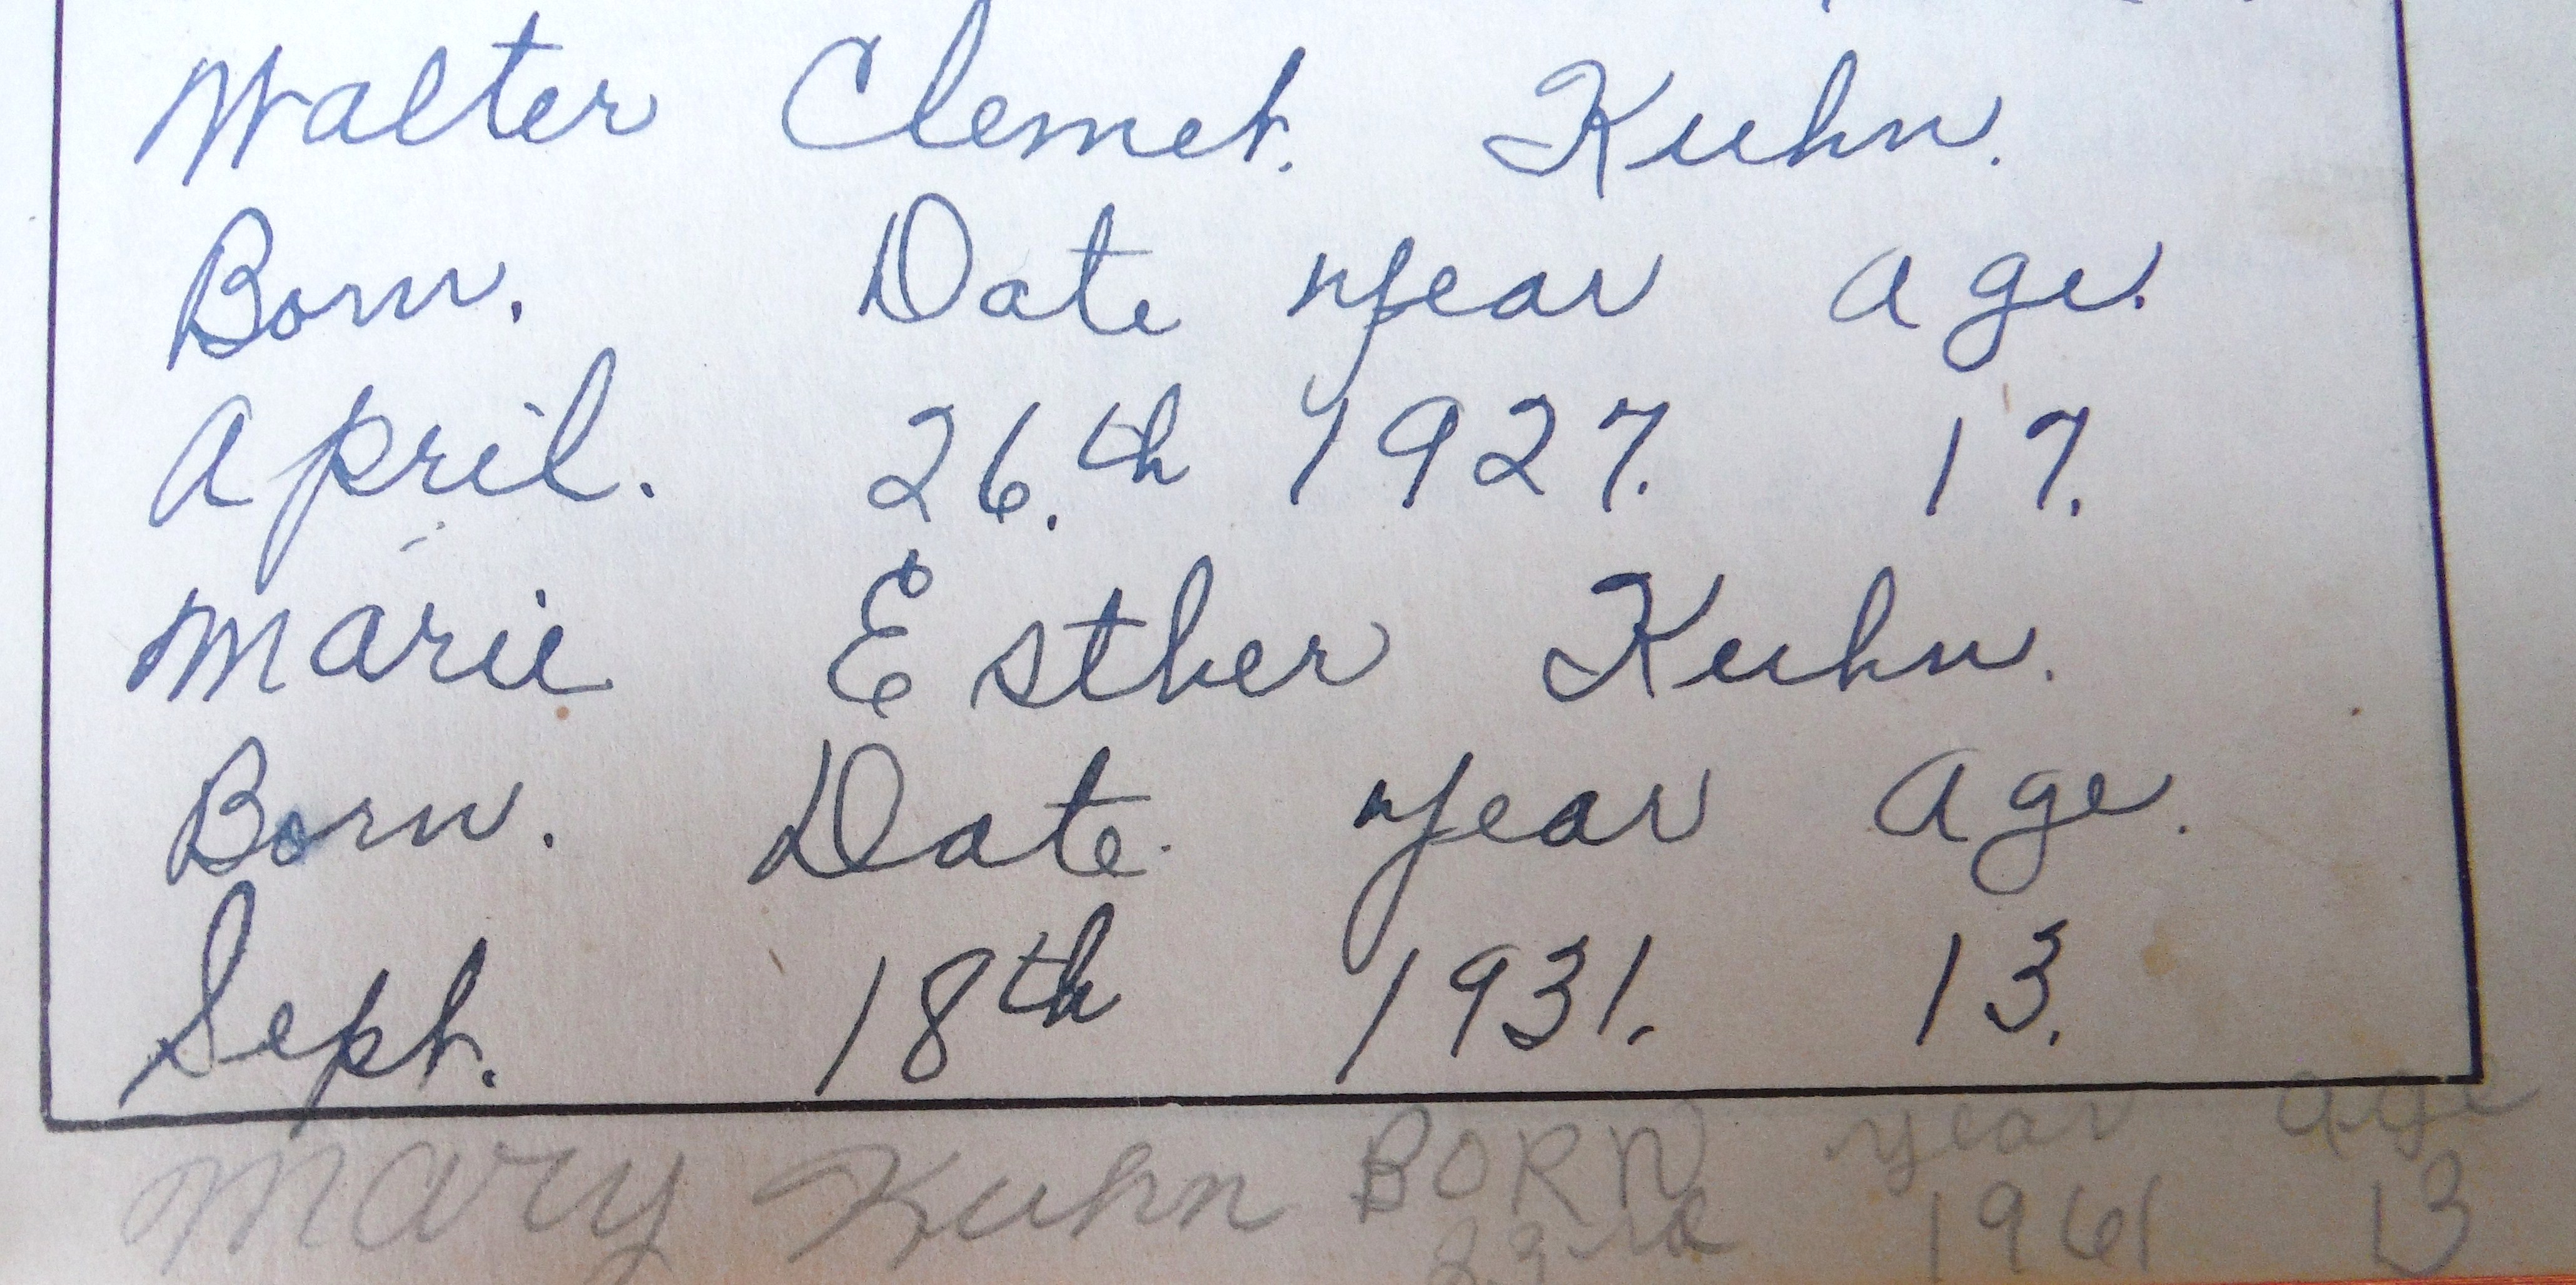 Walter Clemet. Kuhn.
Born. Date year age.
April. 26.th 1927. 17.
Marie Esther Kuhn.
Born. Date. year age.
Sept. 18th 1931. 13.
Mary Kuhn BORN year age
1961 13